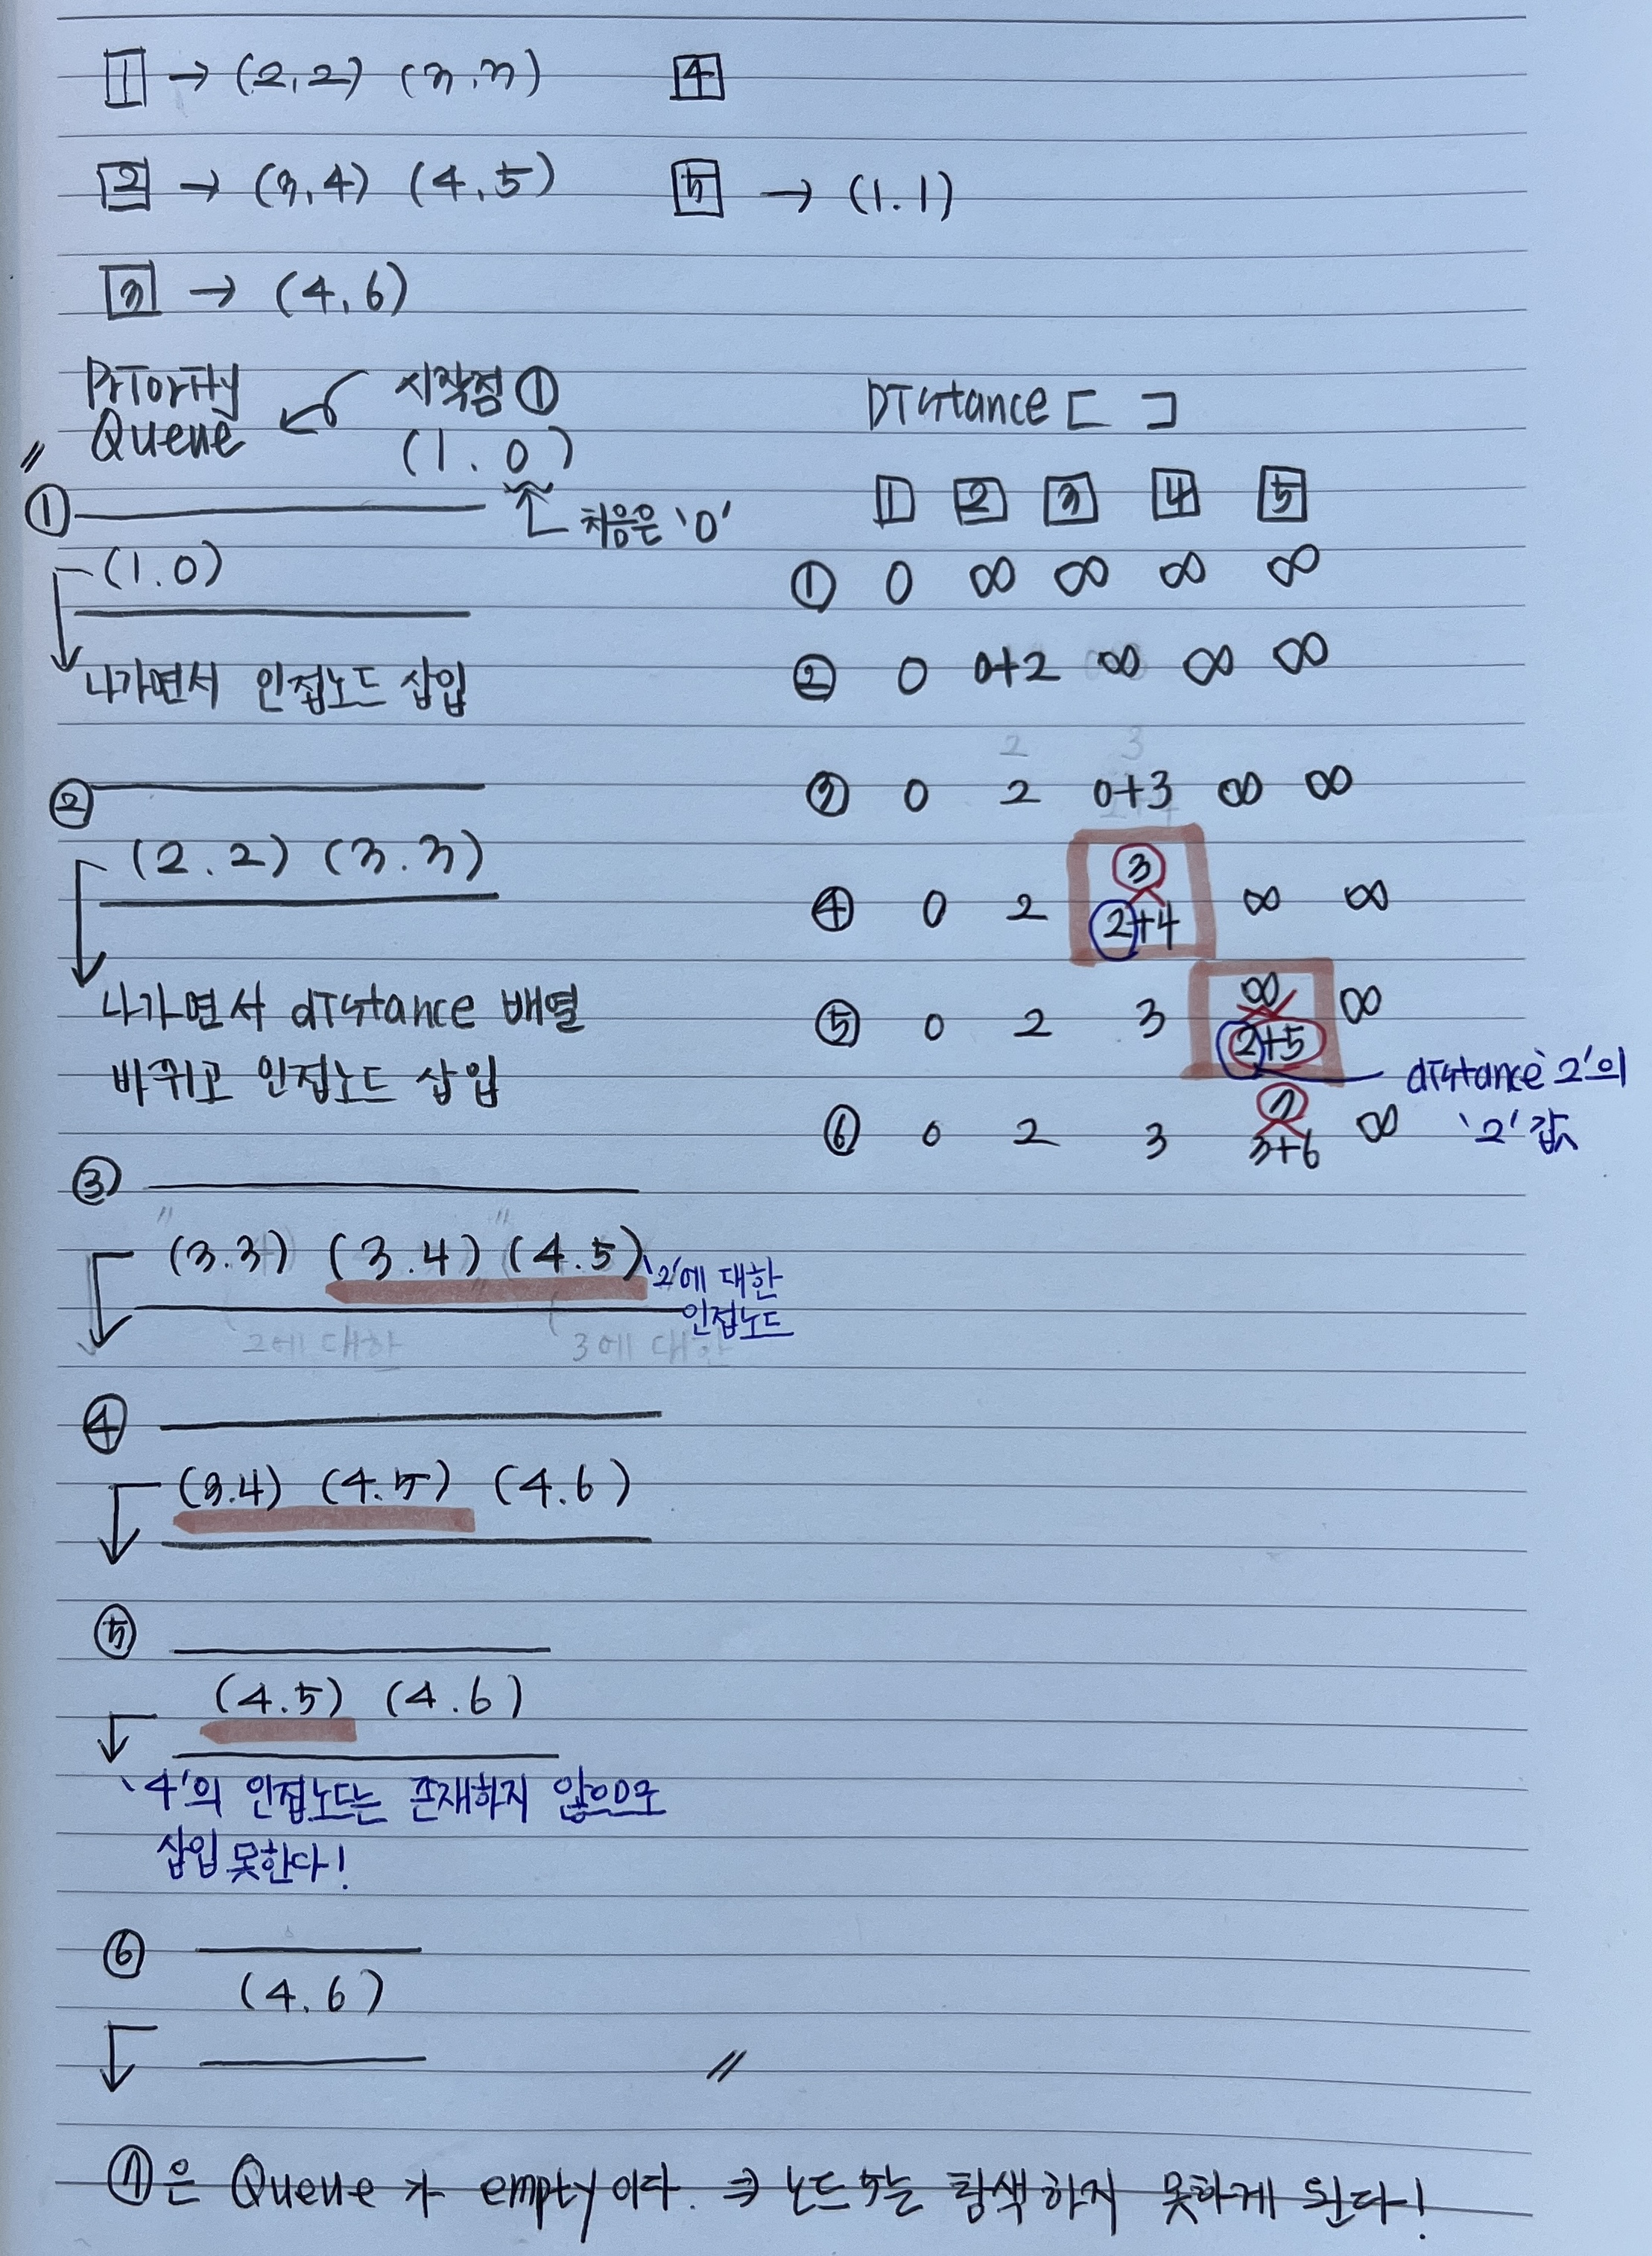 1 → (2,2) (3,3)
4
2 → (3,4) (4,5)
5 → (1.1)
3 → (4,6)
Priority
Queue
시작점 ①
(1.0)
처음은 '0'
①
(1.0)
나가면서 인접노드 삽입
②
(2.2) (3.3)
나가면서 distance 배열
바뀌고 인접노드 삽입
③
(3.3) (3.4) (4.5)
'2'에 대한
인접노드
2에 대한 3에 대한
④
(3.4) (4.5) (4.6)
⑤
(4.5) (4.6)
'4'의 인접노드는 존재하지 않으므로
삽입 못한다!
⑥
(4.6)
〃
Distance [ ]
1 2 3 4 5
① 0 ∞ ∞ ∞ ∞
② 0 0+2 ∞ ∞ ∞
2 3
③ 0 2 0+3 ∞ ∞
3
④ 0 2 2+4 ∞ ∞
∞
⑤ 0 2 3 2+5 ∞
distance '2'의
'2' 값
7
⑥ 0 2 3 3+6 ∞
⑦은 Queue가 empty이다. ⇒ 노드 5는 탐색하지 못하게 된다!